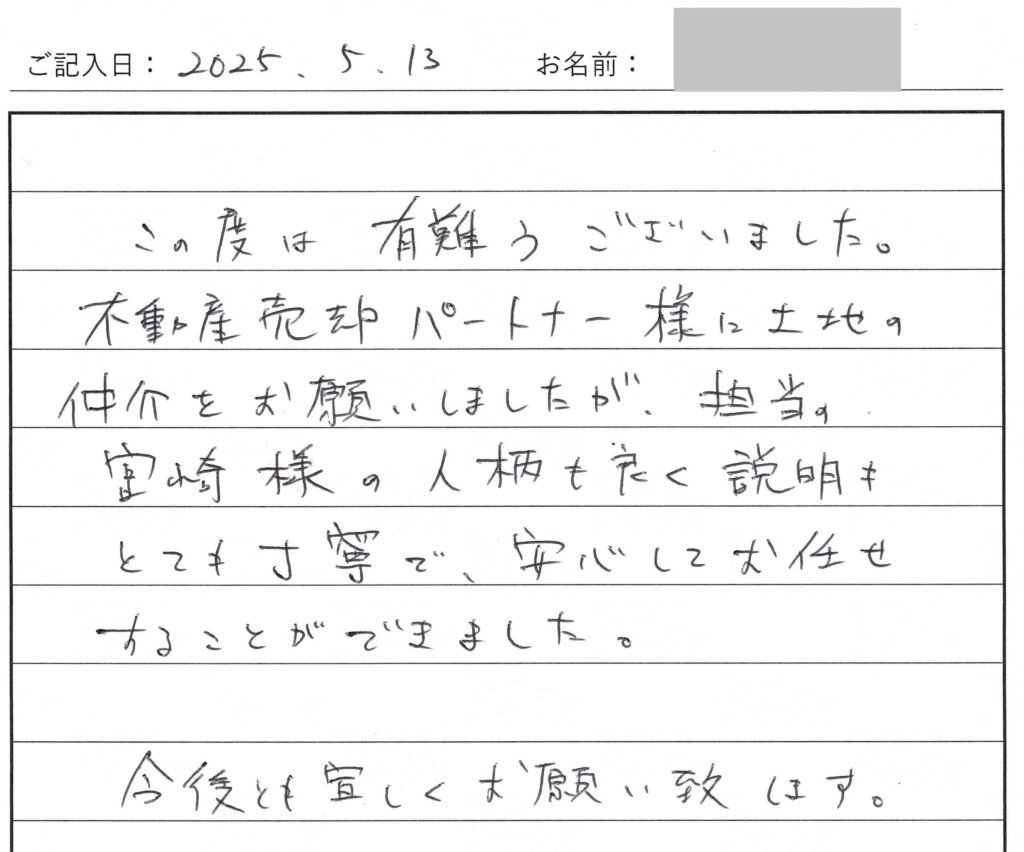 ご記入日： 2025. 5. 13 お名前：
この度は 有難うございました。
不動産売却パートナー様に土地の
仲介をお願いしましたが、担当の
宮崎様の人柄も良く説明も
とても丁寧で、安心してお任せ
することができました。
今後とも宜しくお願い致します。